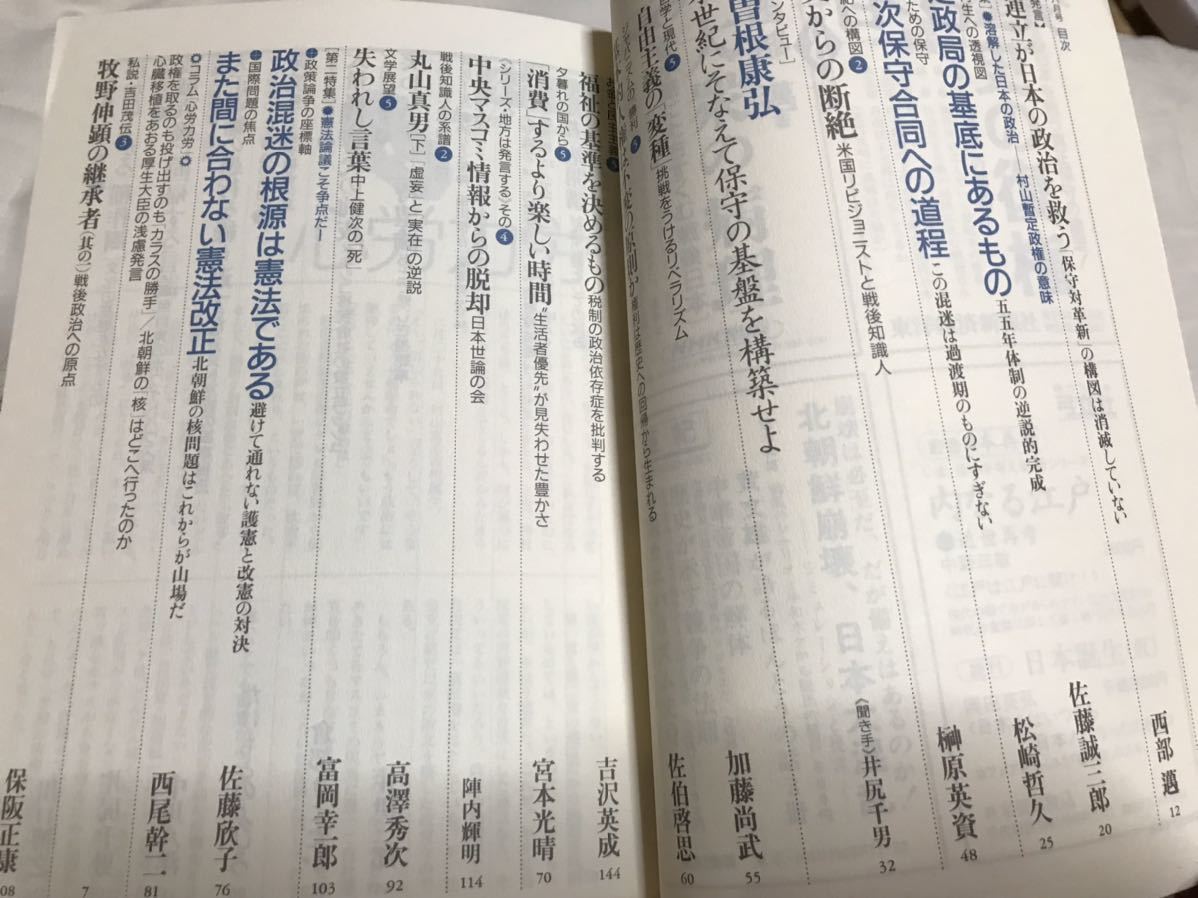 月号 目次
発言】
連立が日本の政治を救う 「保守対革新」の構図は消滅していない
西部 邁 12
集】●溶解した日本の政治──村山暫定政権の意味
生への透視図
政局の基底にあるもの 五五年体制の逆説的完成
佐藤誠三郎 20
ための保守
次保守合同への道程 この混迷は過渡期のものにすぎない
松崎哲久 25
への構図❷
からの断絶 米国リビジョニストと戦後知識人
榊原英資 48
ンタビュー】
曽根康弘
世紀にそなえて保守の基盤を構築せよ
〈聞き手〉井尻千男 32
学と現代❺
自由主義の「変種」 挑戦をうけるリベラリズム
加藤尚武 55
権利は歴史への回帰から生まれる
佐伯啓思 60
福祉の基準を決めるもの 税制の政治依存症を批判する
吉沢英成 144
夕暮れの国から❺
「消費」するより楽しい時間 “生活者優先”が見失わせた豊かさ
宮本光晴 70
〈シリーズ・地方は発言する〉その❹
中央マスコミ情報からの脱却 日本世論の会
陣内輝明 114
戦後知識人の系譜❷
丸山真男[下] 「虚妄」と「実在」の逆説
高澤秀次 92
文学展望❺
失われし言葉 中上健次の「死」
富岡幸一郎 103
【第二特集】●憲法論議こそ争点だ!
政策論争の座標軸
政治混迷の根源は憲法である 避けて通れない護憲と改憲の対決
佐藤欣子 76
国際問題の焦点
また間に合わない憲法改正 北朝鮮の核問題はこれからが山場だ
西尾幹二 81
コラム、心労力労
政権を取るのも投げ出すのも「カラスの勝手」/北朝鮮の「核」はどこへ行ったのか
心臓移植をあおる厚生大臣の浅慮発言
7
私説・吉田茂伝❸
牧野伸顕の継承者(其の二) 戦後政治への原点
保阪正康 08